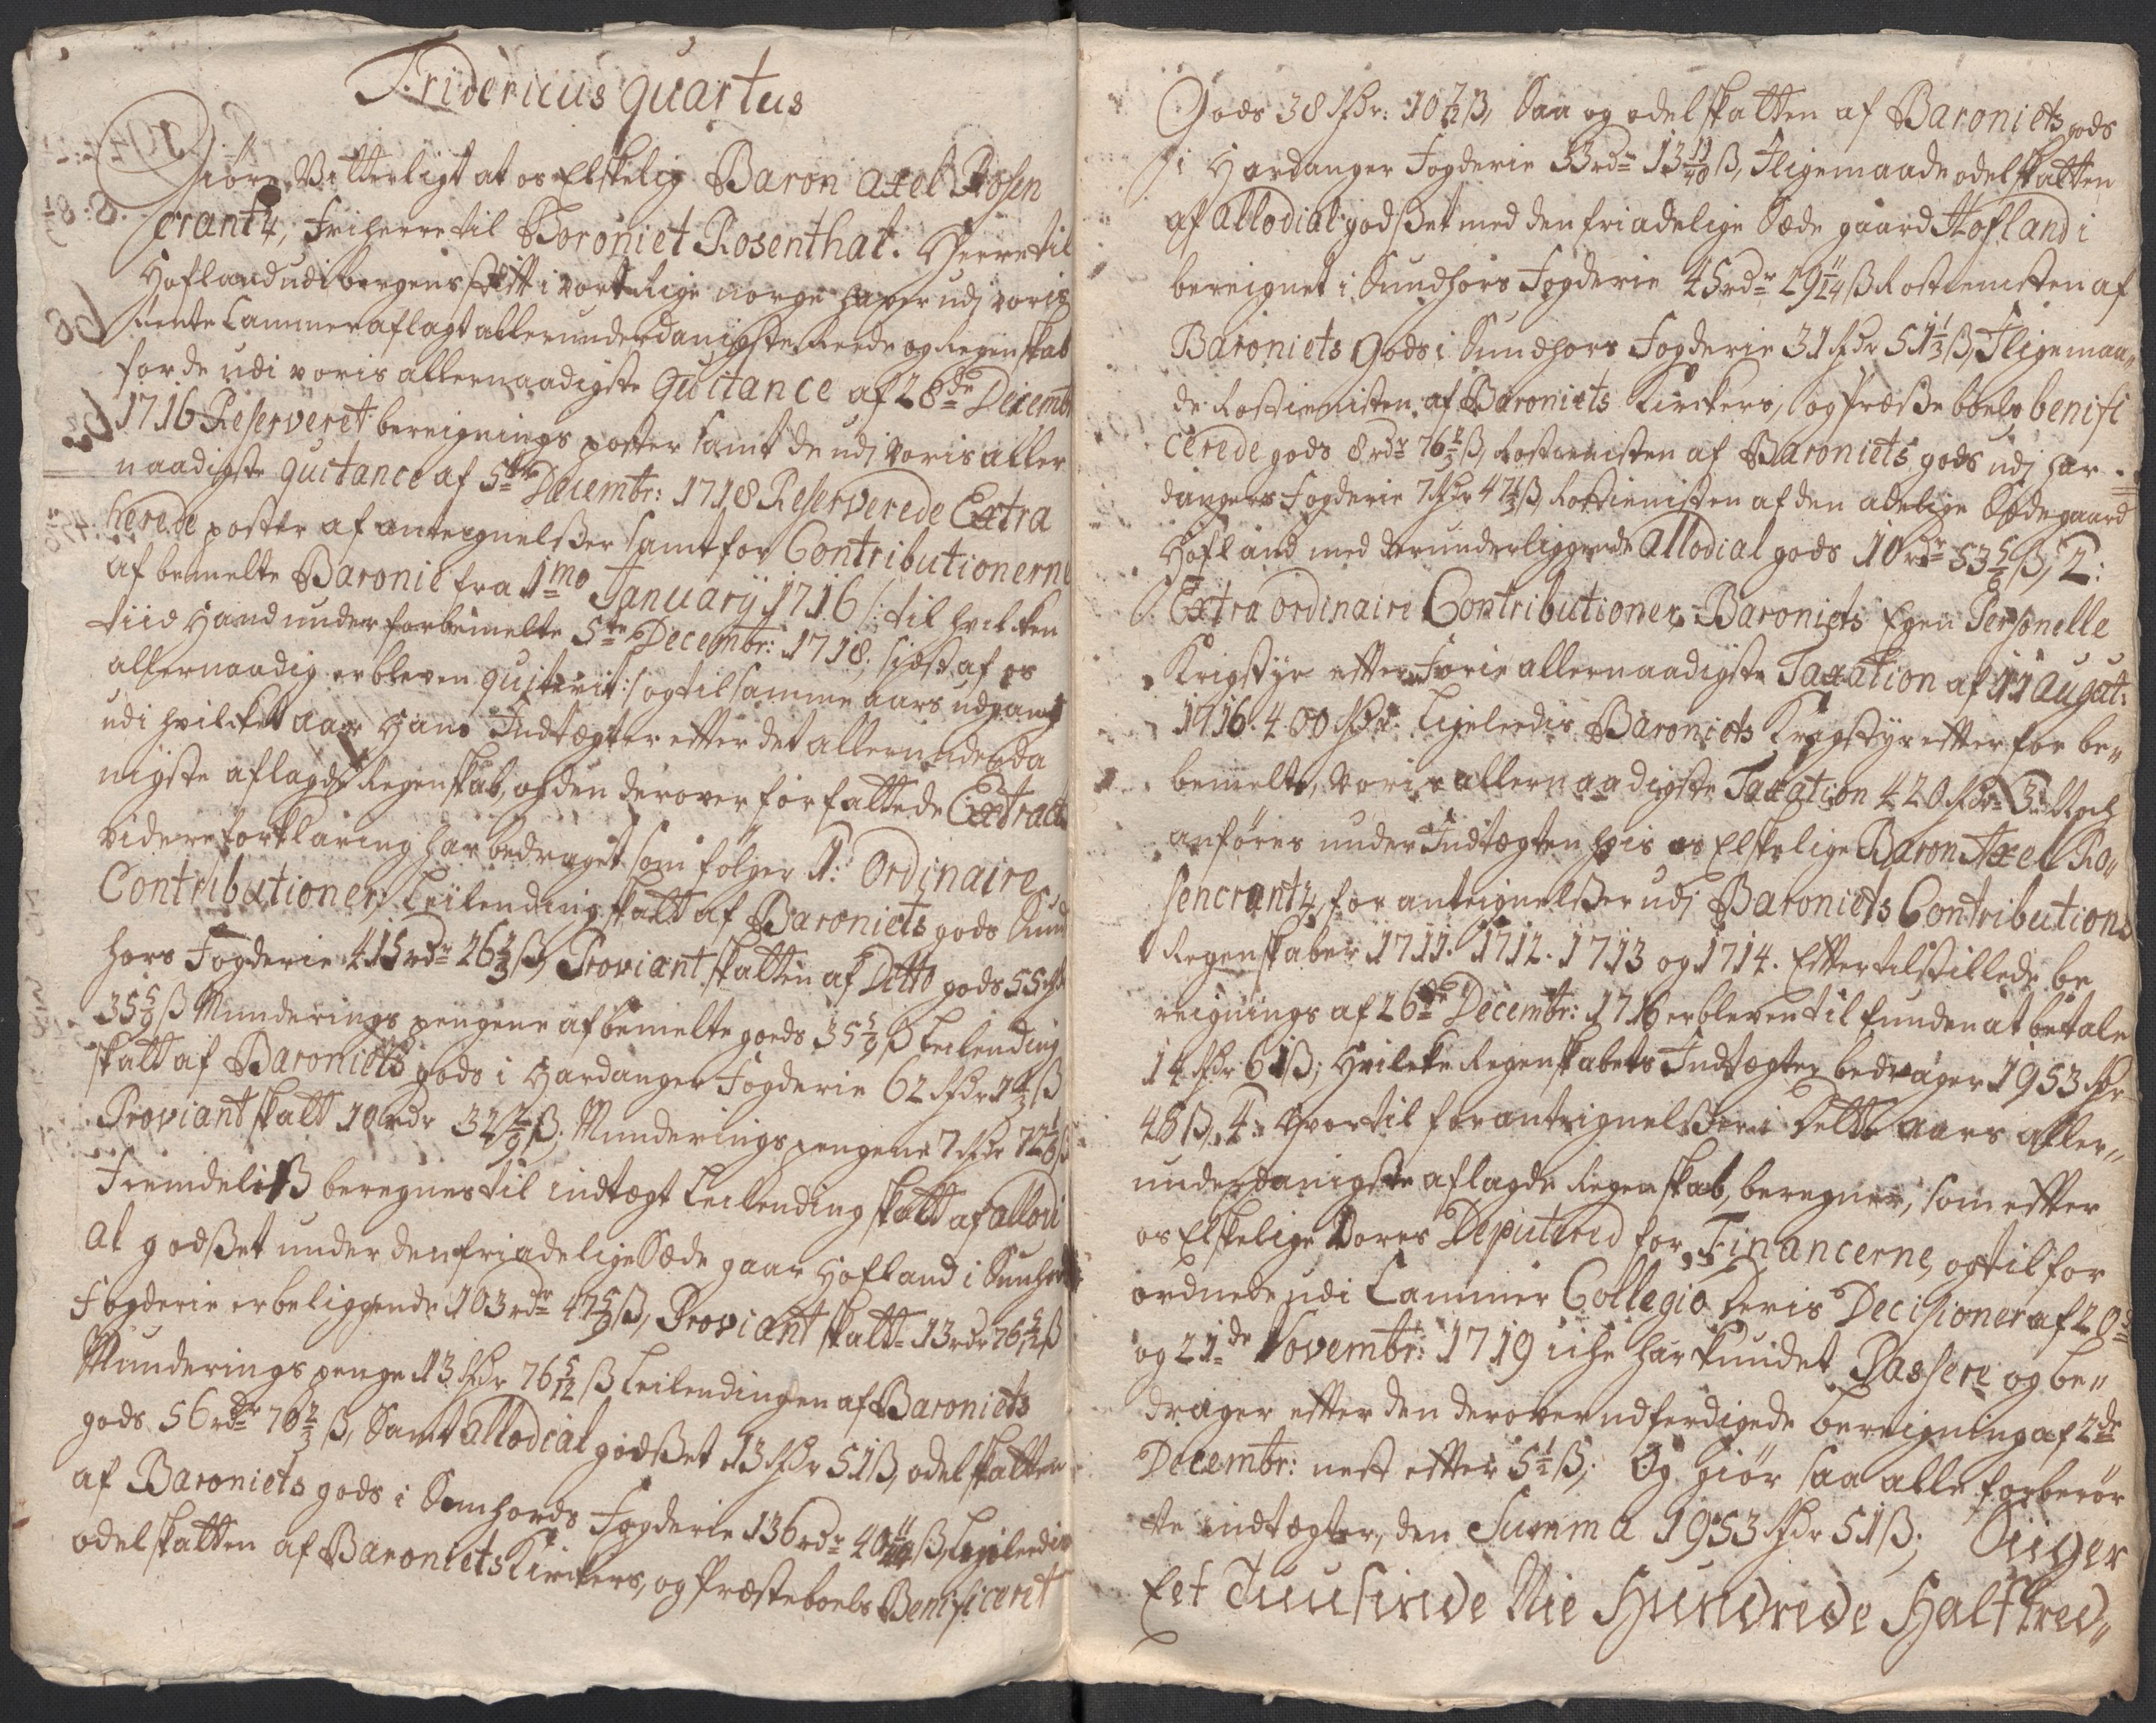 Fridericus Quartus
Giöre Vitterligt at os Elskelig Baron Axel Rosen
crantz, Friherre til Boroniet Rosenthal. Herre til
Hafland udi bergens Stift i vort Rige norge haver udj voris
Rente Cammer aflagt allerunderdanigste Reede og Regenskab
for de udi voris allernaadigste Qvitance af 28de Decembr
1716 Reserveret bereignings poster samt de udj voris aller
naadigste quitance af 5te Decembr: 1718 Reserverede Extra
herede poster af antegnelsßer samt for Contributionerne
af bemelte Baronie fra 1mo January 1716 /: til hvilcken
tiid Hand under forbemelte 5te Decembr: 1718. sidst af os
allernaadig er bleven quiterit :/ og til samme aars udgang
udi hvilcket aar Hans Indtægter efter det allerunderda
nigste aflagde Regenskab, og den derover forfattede Extract
videre forklaring har bedraget som fölger 1: Ordinaire
Contributioner, Leilending skatt af Baroniets gods Sund
hors Fogderie 415 rdr 26 2/3 ß, Proviant skatten af Ditto gods 55 rdr
35 5/9 ß Munderings pengene af bemelte goeds 35 5/9 ß Leilending
skatt af Baroniets gods i Hardanger Fogderie 62 rdr 1 1/3 ß
Proviant skatt 10 rdr 32 2/9 ß; Munderings pengene 7 rdr 72 1/6 ß
Fremdeliß beregnes til indtægt Leilending skatt af allodi
al godsßet under den friadelige Sæde gaar Hofland i Sunhor
Fogderie er beliggende 103 rdr 47 5/9 ß, Proviant skatt 13 rdr 76 5/12 ß
Munderings penge 13 rdr 76 5/12 ß Leilendingen af Baroniets
gods 56 rdr 70 2/3 ß, Samt allodial godsßet 13 rdr 51 ß, odelskatten
af Baroniets gods i Sømhords Fogderie 136 rdr 40 ß, Ligeleedis
odelskatten af Baroniets Kirckers, og Præsteboels Benificeret
Gods 38 rdr: 10 1/2 ß, Saa og odelskatten af Baroniets gods
i Hardanger Fogderie 33 rdr 13 11/40 ß, Iligemaade odelskatten
af allodial godsßet med den friadelige Sæde gaard Hofland i
bereignet i Sundhors Fogderie 45 rdr 29 1/4 ß Rostienisten af
Baroniets gods i Sundhors Fogderie 31 rdr 51 1/3 ß, Iligemaa„
de Rostienisten af Baroniets Kirckers, og Præsße boels benifi
cerede gods 8 rdr 76 2/3 ß, Rostienisten af Baroniets gods udj har
dangers Fogderie 7 rdr 47 1/3 ß Rostienisten af den adelige Sædegaard
Hofland med derunderliggende allodial gods 10 rdr 53 5/6 ß, 2:
Extra ordinaire Contributioner, Baroniets Egen Personelle
Krigstyr efter Vorie allernaadigste Taxation af 11 August:
1716. 400 rdr. Ligeleedis Baroniets Krigstyr efter for be„
bemelte, voris allernaadigste Taxation 420 rdr 3: Noch
anföres under Indtægten hvis os Elskelige Baron Axel Ro„
sencrantz for anteignelsßer udj Baroniets Contributions
Regenskaber 1711. 1712. 1713 og 1714. Efter tilstillede be
reignings af 26de Decembr: 1716 er bleven tilfunden at betale
14 rdr 61 ß; Hvilcke Regenskabets Indtægter bedrager 1953 rdr
48 ß, 4: Hvortil for anteignelsßer i dette aars aller„
underdanigste aflagde Regenskab, beregner, som efter
os Elskelige Vores Deputered for Financerne, og til for
ordnede udi Cammer Collegio Deris Decisioner af 20de
og 21de Novembr: 1719 iche har kundet Passere og be„
drager efter den derover udferdigede bereigning af 2de
Decembr: nest efter 5 1/2 ß; Og giör saa alle forberör
te indtægter, den Summa 1953 rdr 51 ß; Siiger
Eet Tuusinde Nie Hundrede Halftred„